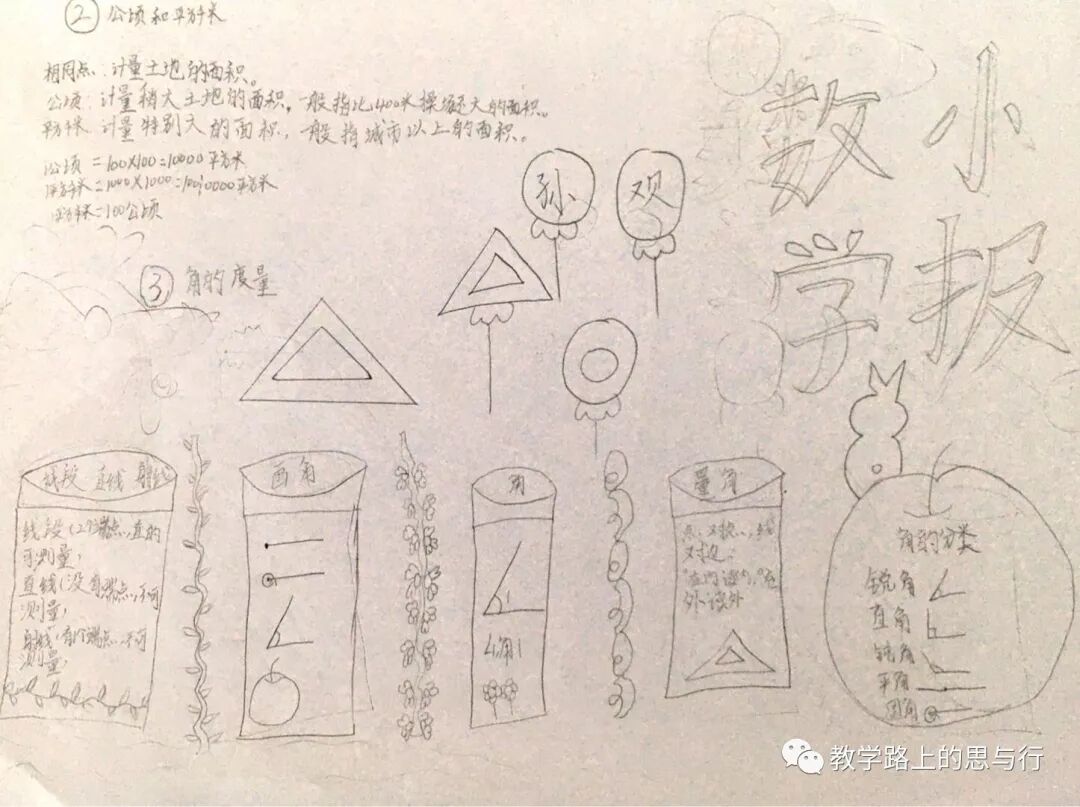 ② 公顷和平方千米
相同点:计量土地的面积。
公顷:计量稍大土地的面积,一般指比400米操场还大的面积。
平方千米 计量特别大的面积,一般指城市以上的面积。
1公顷=100×100=10000平方米
1平方千米=1000×1000=1000000平方米
1平方千米=100公顷
③ 角的度量
孙 观
数学
小报
线段 直线 射线
线段(2个端点,直的
可测量,
直线(没有端点,不可
测量,
射线(有1个端点,不可
测量,
画角
角
1
∠角1
量角
点对
对边,
外读外
角的分类
锐角
直角
钝角
平角
周角
教学路上的思与行